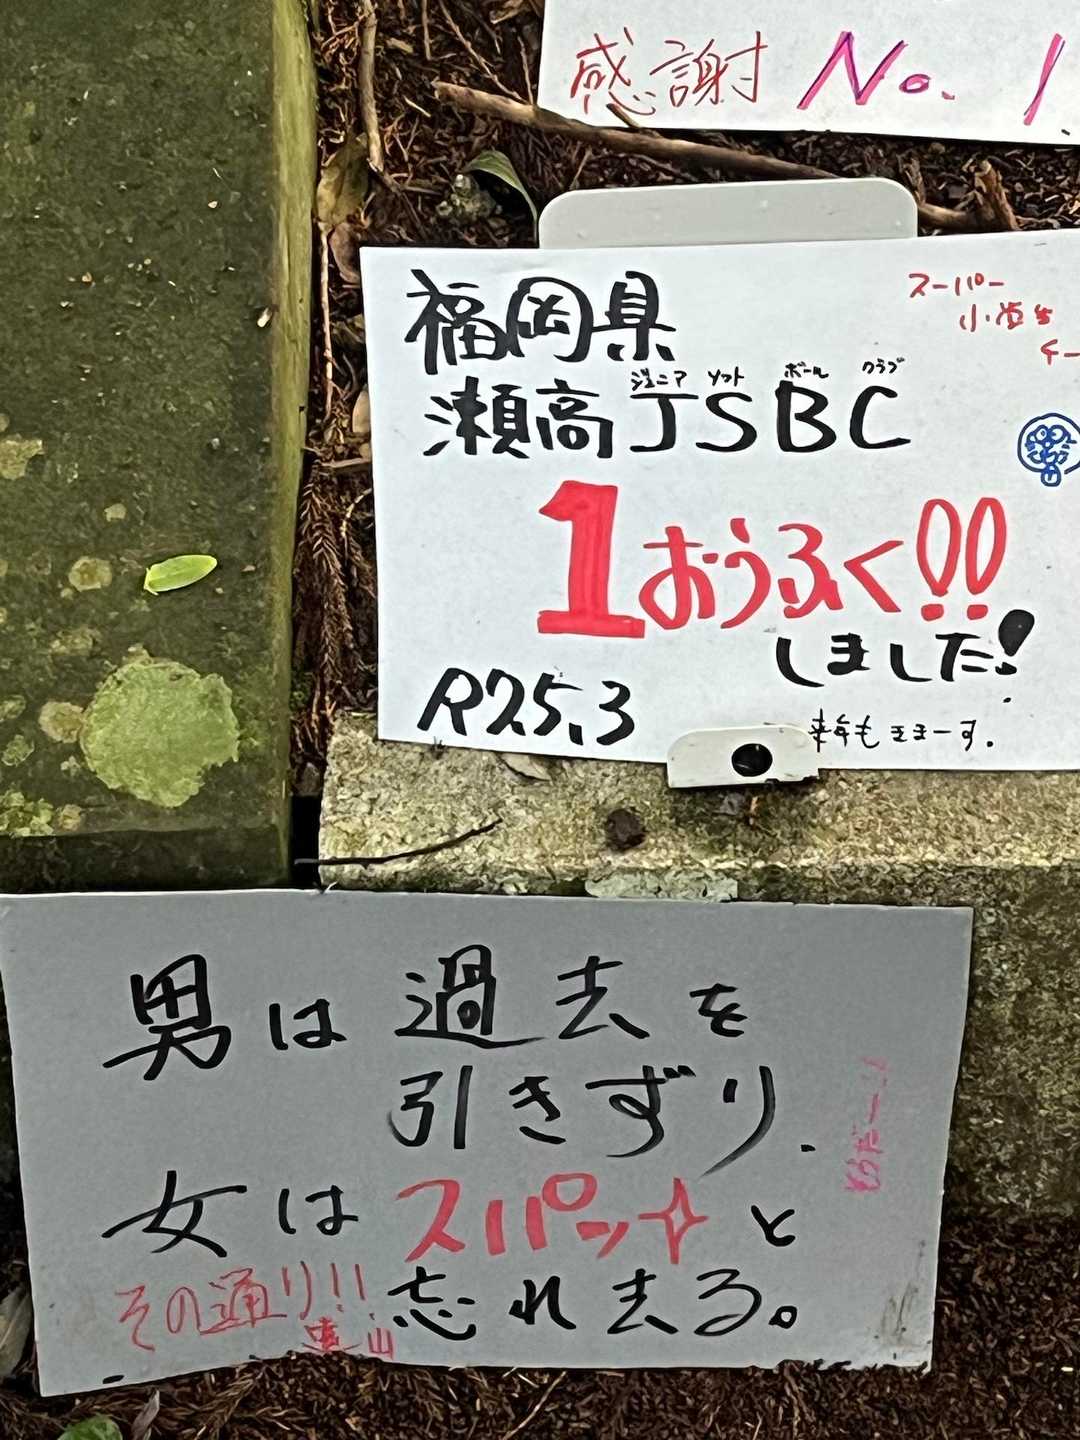 感謝 No.1
福岡県
スーパー
瀬高JSBC
ジュニア ソフト ボール クラブ
1おうふく!!
しました!
R7.5.3
来年もきまーす.
男は過去を
引きずり.
女はスパッと
忘れ去る。
その通り!!
遠山